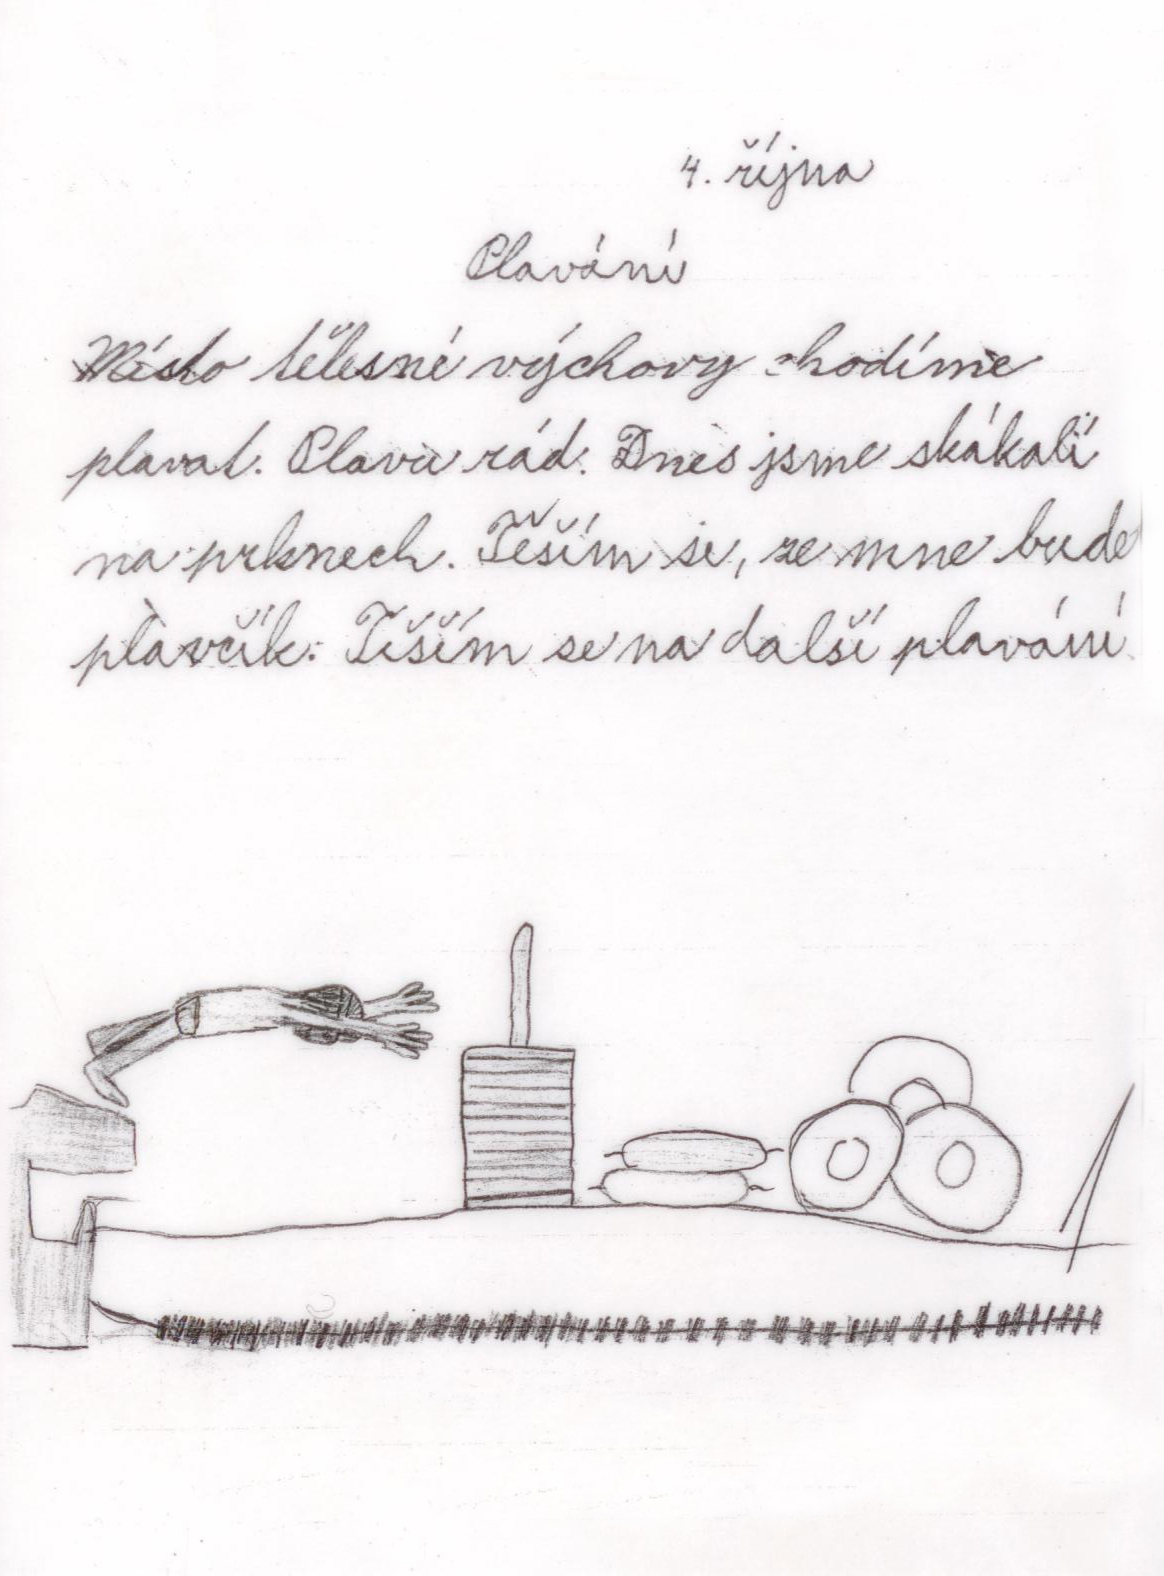 4. října
Plavání
Místo tělesné výchovy chodíme
plavat. Plavu rád. Dnes jsme skákali
na prknech. Těším se, ze mne bude
plavčík. Těším se na další plavání.